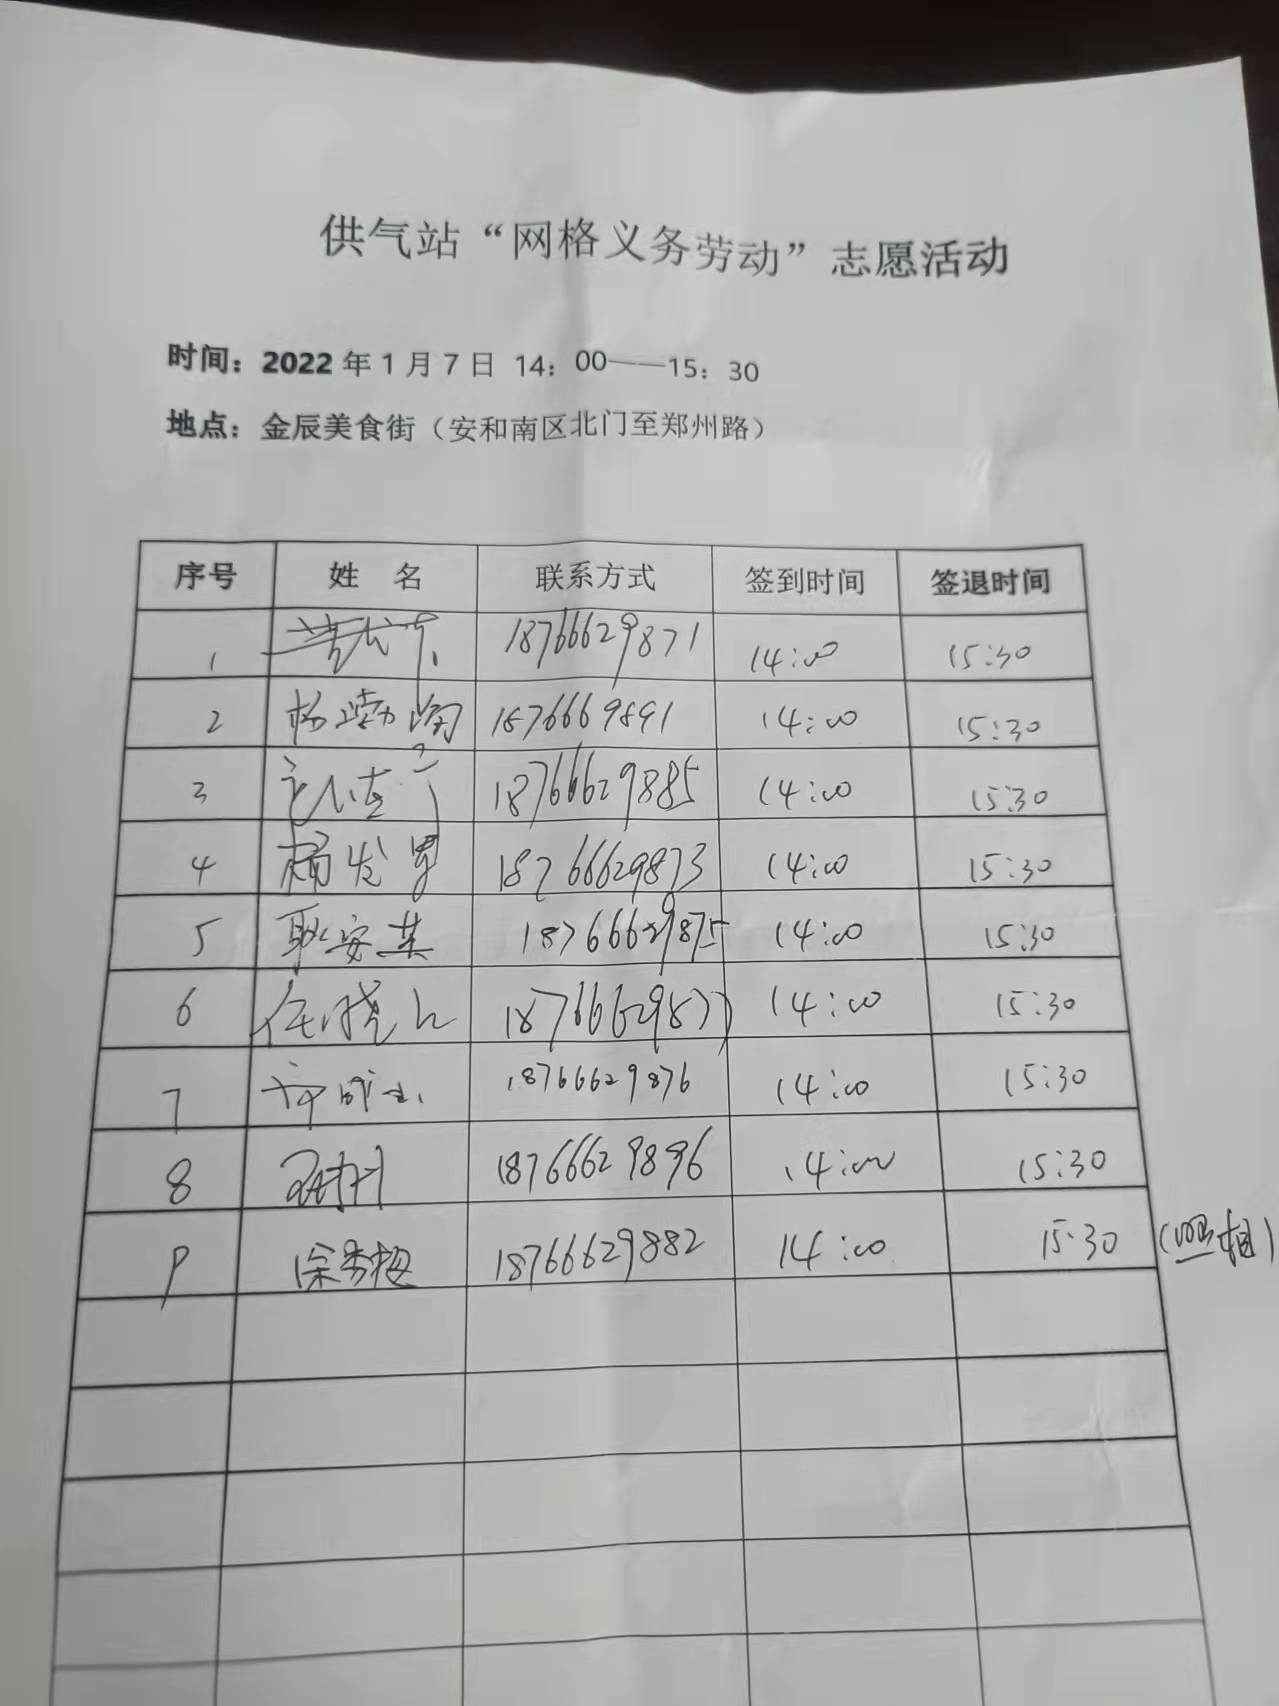 供气站“网格义务劳动”志愿活动
时间：2022 年 1 月 7 日 14：00——15：30
地点：金辰美食街（安和南区北门至郑州路）
序号 姓 名 联系方式 签到时间 签退时间
1 18766629871 14:00 15:30
2 杨渤海 1876669891 14:00 15:30
3 18766629885 14:00 15:30
4 杨发军 18766629873 14:00 15:30
5 耿安其 18766629875 14:00 15:30
6 任晓 18766629877 14:00 15:30
7 18766629876 14:00 15:30
8 18766629896 14:00 15:30
9 徐秀梅 18766629882 14:00 15:30 (照相)